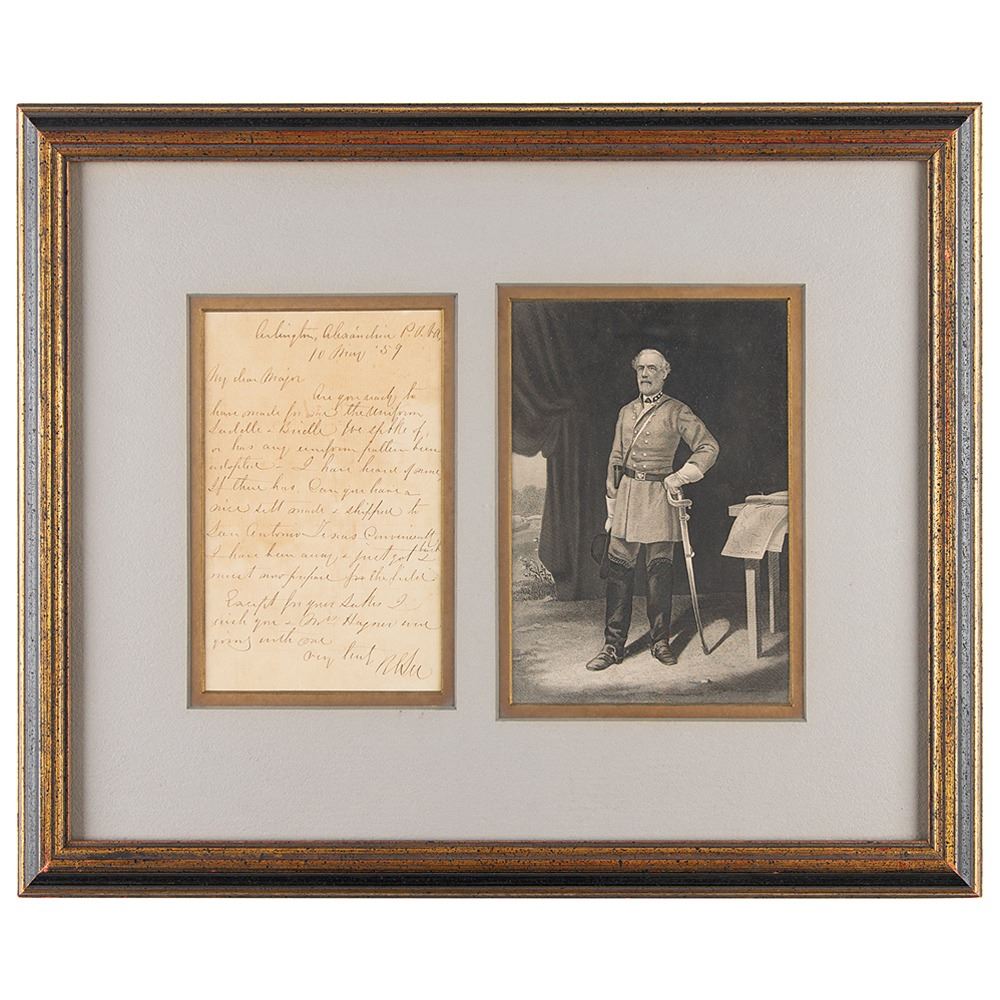 Arlington, Alexandria P.O. Va
10 May '59
My dear Major
Are you ready to
have made for me the Uniform
Saddle & Bridle we spoke of,
or has any uniform pattern been
adopted - I have heard of none,
If there has. Can you have a
nice sett made & shipped to
San Antonio Texas Conveniently
I have been away & just got back
must now prepare for the field.
Except for your sakes I
wish you & Mrs Hagner were
going with me
very truly
RELee